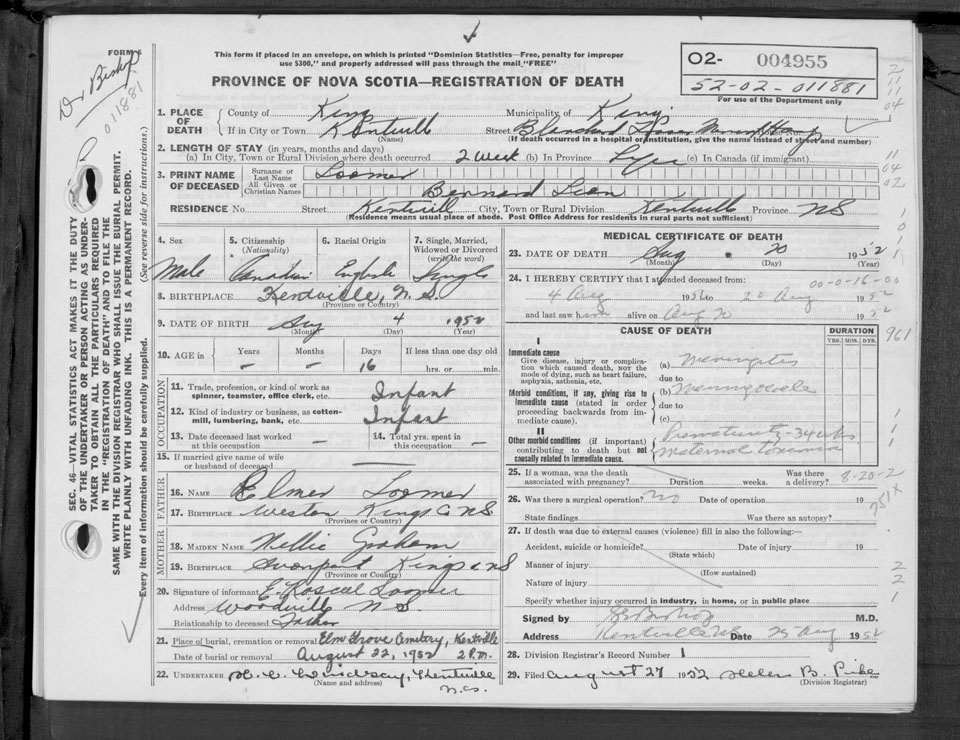 FORM 6
Dr Bishop
011881
This form if placed in an envelope, on which is printed "Dominion Statistics—Free, penalty for improper
use $300," and properly addressed will pass through the mail "FREE"
PROVINCE OF NOVA SCOTIA—REGISTRATION OF DEATH
O2- 004955
52-02-011881
For use of the Department only
1. PLACE OF DEATH County of Kings Municipality of Kings
If in City or Town Kentville (Name) Street Blanchard Fraser Memorial Hosp
(If death occurred in a hospital or institution, give the name instead of street and number)
2. LENGTH OF STAY (in years, months and days)
(a) In City, Town or Rural Division where death occurred 2 week (b) In Province Life (c) In Canada (if immigrant)
3. PRINT NAME OF DECEASED Surname or Last Name Loomer
All Given or Christian Names Bernard
RESIDENCE No. Street Kentville City, Town or Rural Division Kentville Province NS
(Residence means usual place of abode. Post Office Address for residents in rural parts not sufficient)
4. Sex Male
5. Citizenship (Nationality) Canadian
6. Racial Origin English
7. Single, Married, Widowed or Divorced (write the word) Single
8. BIRTHPLACE Kentville, N.S.
(Province or Country)
9. DATE OF BIRTH Aug 4 1952
(Month) (Day) (Year)
10. AGE in Years — Months — Days 16 If less than one day old hrs. or min.
OCCUPATION
11. Trade, profession, or kind of work as spinner, teamster, office clerk, etc. Infant
12. Kind of industry or business, as cotton-mill, lumbering, bank, etc. Infant
13. Date deceased last worked at this occupation —
14. Total yrs. spent in this occupation —
15. If married give name of wife or husband of deceased —
FATHER
16. NAME Elmer Loomer
17. BIRTHPLACE Weston Kings Co NS
(Province or Country)
MOTHER
18. MAIDEN NAME Nellie Graham
19. BIRTHPLACE Avonport Kings Co NS
(Province or Country)
20. Signature of informant E. Loomer
Address Woodville N.S.
Relationship to deceased Father
21. Place of burial, cremation or removal Elm Grove Cemetery, Kentville
Date of burial or removal August 22, 1952 2 P.M.
22. UNDERTAKER H. C. Lindsay, Kentville
(Name and address) N.S.
MEDICAL CERTIFICATE OF DEATH
23. DATE OF DEATH Aug 20 1952
(Month) (Day) (Year)
24. I HEREBY CERTIFY that I attended deceased from: 00-0-16-00
4 Aug 1952 to 20 Aug 1952
and last saw him alive on Aug 20 1952
CAUSE OF DEATH
DURATION
YRS. MOS. DYS.
961
I
Immediate cause
Give disease, injury or complication which caused death, not the mode of dying, such as heart failure, asphyxia, asthenia, etc.
(a) Meningitis
due to
Morbid conditions, if any, giving rise to immediate cause (stated in order proceeding backwards from immediate cause)
(b) Meningocele
due to
(c)
II
Other morbid conditions (if important) contributing to death but not causally related to immediate cause.
Prematurity - 34 wks
maternal toxemia
25. If a woman, was the death associated with pregnancy? Duration weeks. Was there a delivery? 8-20-2
751X
26. Was there a surgical operation? no Date of operation 19
State findings Was there an autopsy?
27. If death was due to external causes (violence) fill in also the following:—
Accident, suicide or homicide? Date of injury 19
(State which)
Manner of injury
(How sustained)
Nature of injury
Specify whether injury occurred in industry, in home, or in public place
Signed by M.D.
Address Kentville NS Date 25 Aug 1952
28. Division Registrar's Record Number 1
29. Filed August 27 1952 Helen B. Pike
(Division Registrar)
SEC. 46—VITAL STATISTICS ACT MAKES IT THE DUTY
OF THE UNDERTAKER OR PERSON ACTING AS UNDER-
TAKER TO OBTAIN ALL THE PARTICULARS REQUIRED
IN THE "REGISTRATION OF DEATH" AND TO FILE THE
SAME WITH THE DIVISION REGISTRAR WHO SHALL ISSUE THE BURIAL PERMIT.
WRITE PLAINLY WITH UNFADING INK. THIS IS A PERMANENT RECORD.
Every item of information should be carefully supplied. (See reverse side for instructions.)